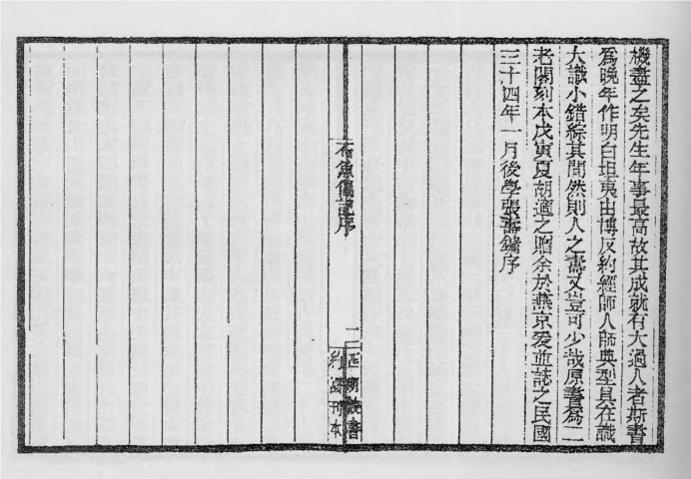 機盡之矣先生年事最高故其成就有大過人者斯書
爲晚年作明白坦夷由博反約經師人師典型具在識
大識小錯綜其間然則人之壽又豈可少哉原書爲二
老閣刻本戊寅夏胡適之贈余於燕京爰並誌之民國
三十四年一月後學張壽鏞序
石魚偶記序
二
四明叢書
約園刊本